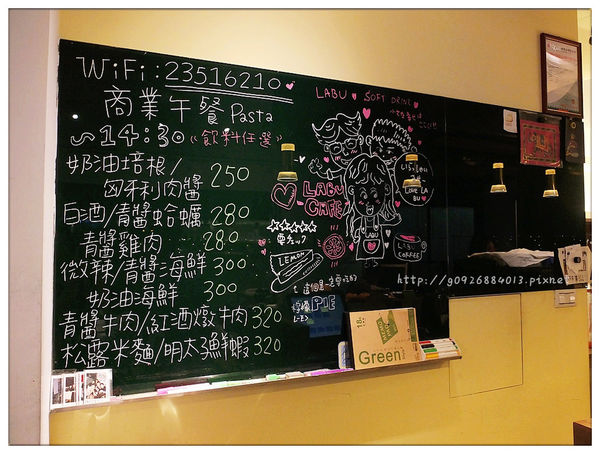 WiFi:23516210
商業午餐 Pasta
~14:30 (飲料任選)
奶油培根/
匈牙利肉醬 250
白酒/青醬蛤蠣 280
青醬雞肉 280
微辣/青醬海鮮 300
奶油海鮮 300
青醬牛肉/紅酒燉牛肉 320
松露米麵/明太子鮮蝦 320
LABU SOFT DRINK
LABU
CAFE
LABU
COFFEE
LEMON
PIE
Green
http://g0926884013.pixne